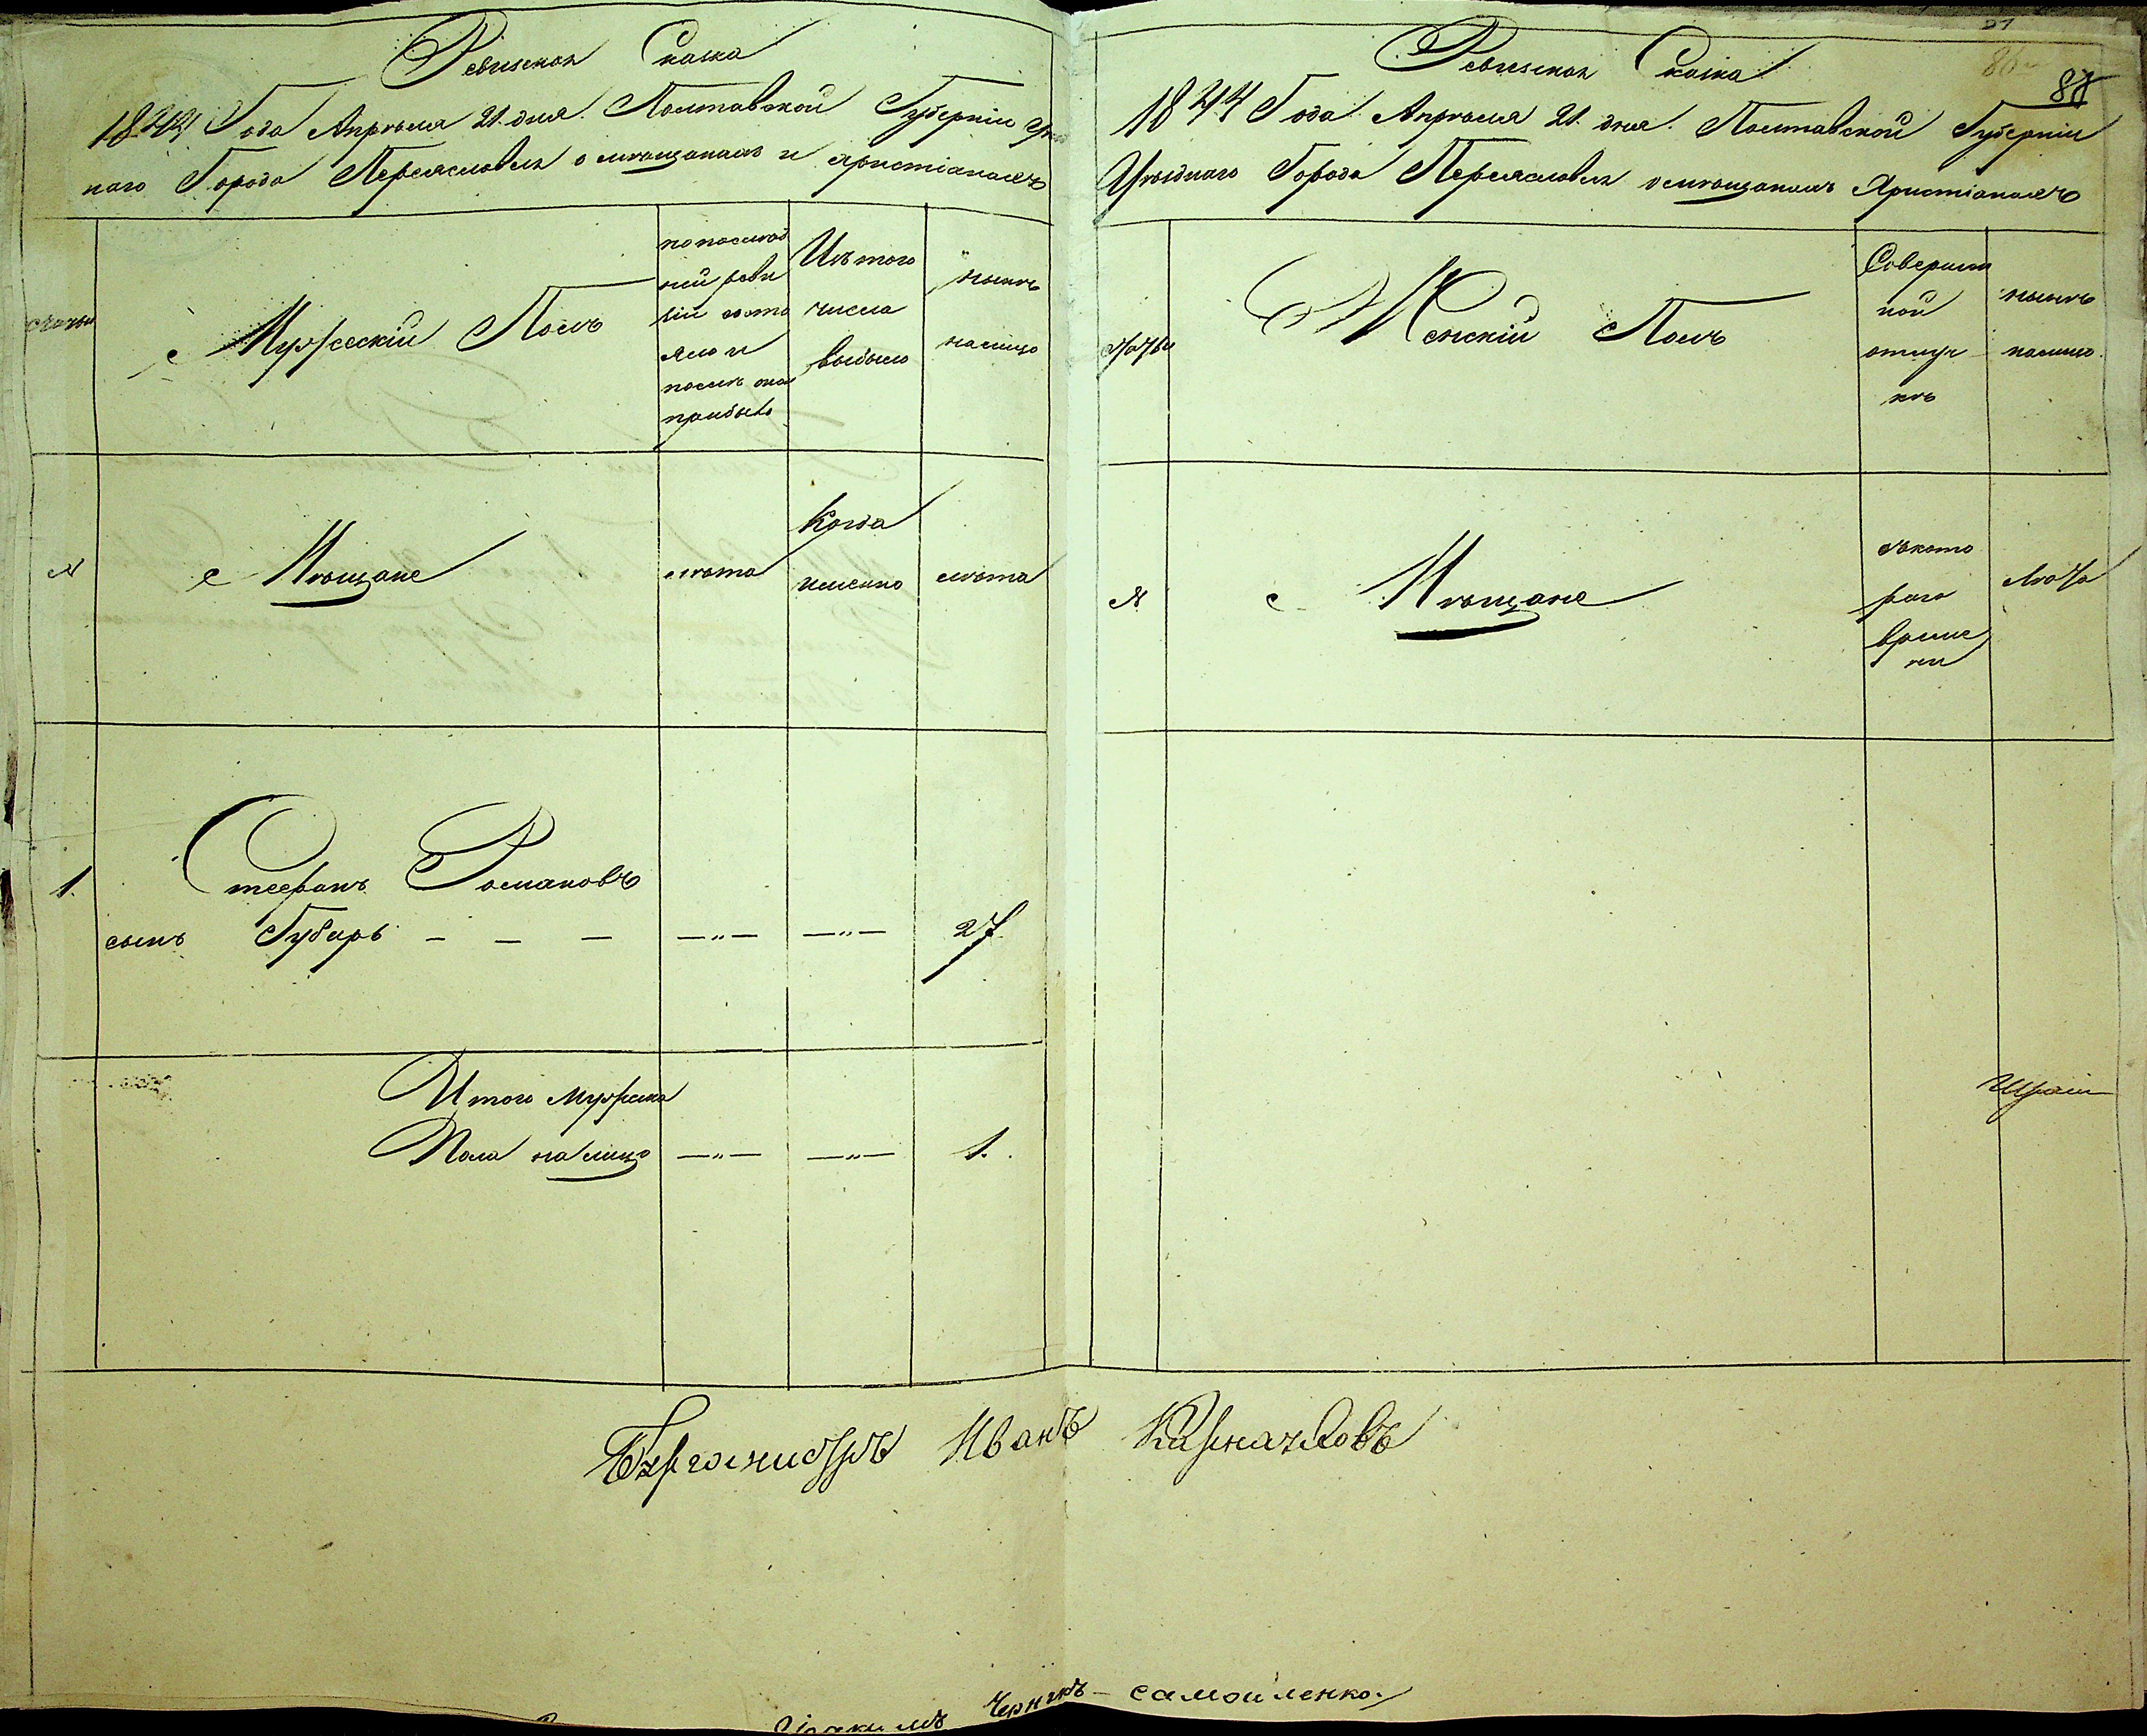 Ревизская Сказка
1844 Года Апрѣля 21. дня. Полтавской Губерніи Уѣзд
наго Города Переяславля о мѣщанахъ и христіанахъ
Мужескій Полъ
по послѣд
ней реви
зіи состо
яло и
послѣ она
прибыло
Изъ того
числа
выбыло
нынѣ
на лицо
№
Мѣщане
лѣта
Когда
именно
лѣта
1.
Стефанъ Романовъ
сынъ Губарь — — — —〃— —〃— 27
Итого мужеска
Пола на лицо —〃— —〃— 1.
21
86
88
Ревизская Сказка
1844 Года Апрѣля 21. дня. Полтавской Губерніи
Уѣзднаго Города Переяславля о мѣщанахъ Христіанахъ
Женскій Полъ
Во времен
ной
отлуч
кѣ
нынѣ
налицо.
№
Мѣщане
съ кото
раго
време
ни
Лѣта
Бургомистръ Иванъ
Чернякъ - самойленко.